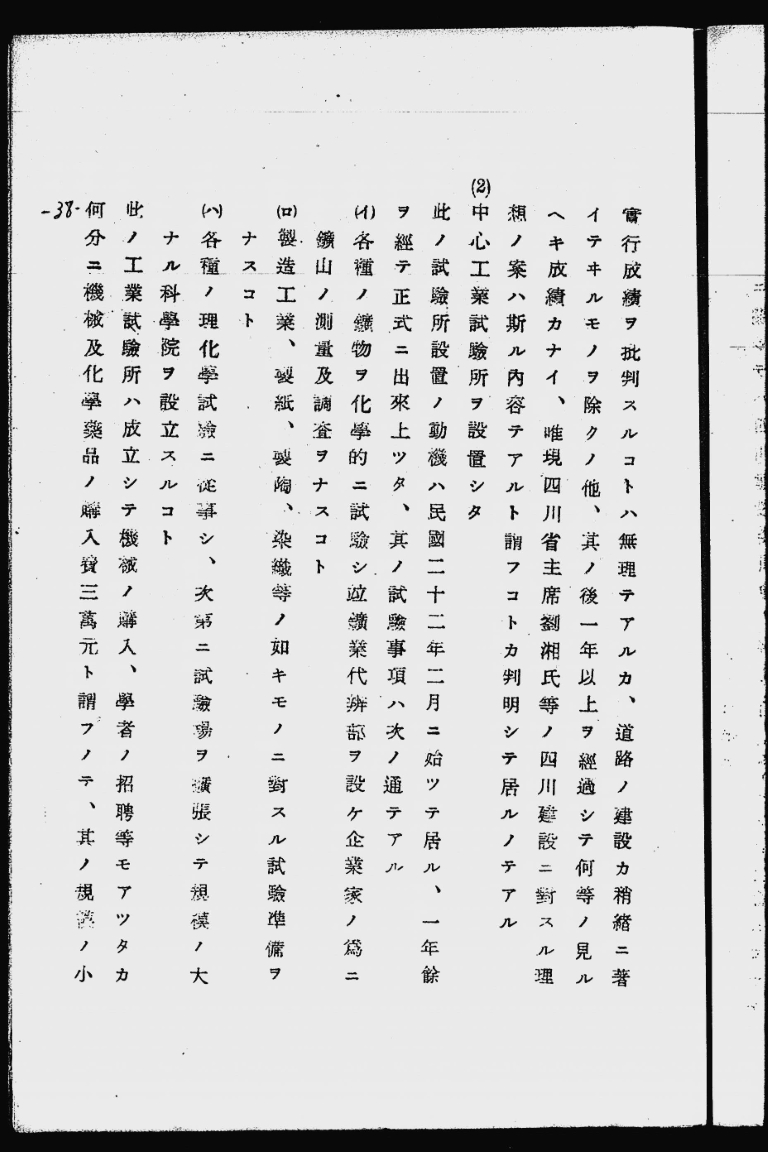 實行成績ヲ批判スルコトハ無理テアルカ、道路ノ建設カ稍緒ニ著
イテヰルモノヲ除クノ他、其ノ後一年以上ヲ經過シテ何等ノ見ル
ヘキ成績カナイ、唯現四川省主席劉湘氏等ノ四川建設ニ對スル理
想ノ案ハ斯ル內容テアルト謂フコトカ判明シテ居ルノテアル
(2)中心工業試驗所ヲ設置シタ
此ノ試驗所設置ノ動機ハ民國二十二年二月ニ始ツテ居ル、一年餘
ヲ經テ正式ニ出來上ツタ、其ノ試驗事項ハ次ノ通テアル
(イ)各種ノ鑛物ヲ化學的ニ試驗シ竝鑛業代辨部ヲ設ケ企業家ノ爲ニ
鑛山ノ測量及調查ヲナスコト
(ロ)製造工業、製紙、製陶、染織等ノ如キモノニ對スル試驗準備ヲ
ナスコト
(ハ)各種ノ理化學試驗ニ從事シ、次第ニ試驗場ヲ擴張シテ規模ノ大
ナル科學院ヲ設立スルコト
此ノ工業試驗所ハ成立シテ機械ノ購入、學者ノ招聘等モアツタカ
何分ニ機械及化學藥品ノ購入費三萬元ト謂フノテ、其ノ規模ノ小
-38-